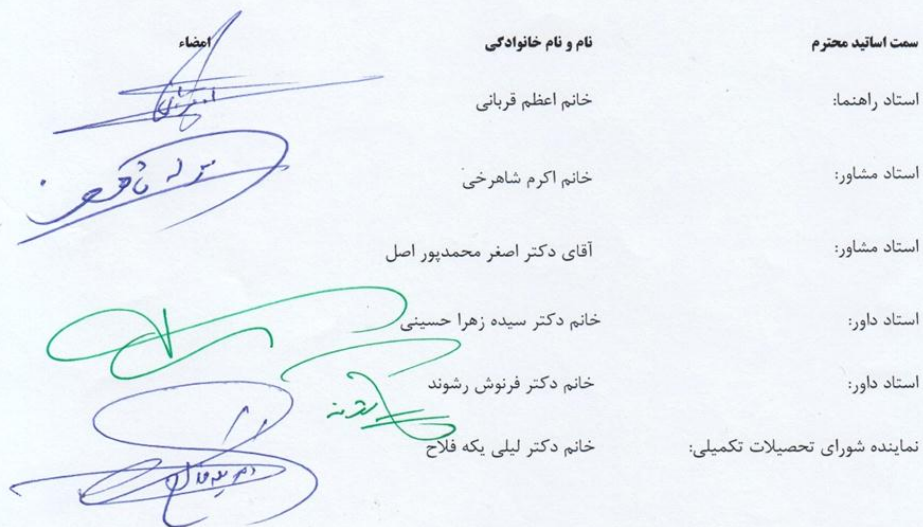 سمت اساتید محترم نام و نام خانوادگی امضاء
استاد راهنما: خانم اعظم قربانی
استاد مشاور: خانم اکرم شاهرخی
استاد مشاور: آقای دکتر اصغر محمدپور اصل
استاد داور: خانم دکتر سیده زهرا حسینی
استاد داور: خانم دکتر فرنوش رشوند
نماینده شورای تحصیلات تکمیلی: خانم دکتر لیلی یکه فلاح